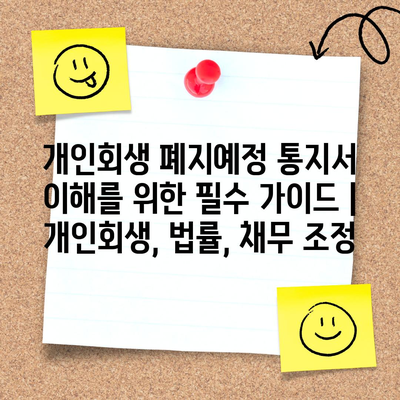 개인회생 폐지예정 통지서
이해를 위한 필수 가이드 |
개인회생, 법률, 채무 조정